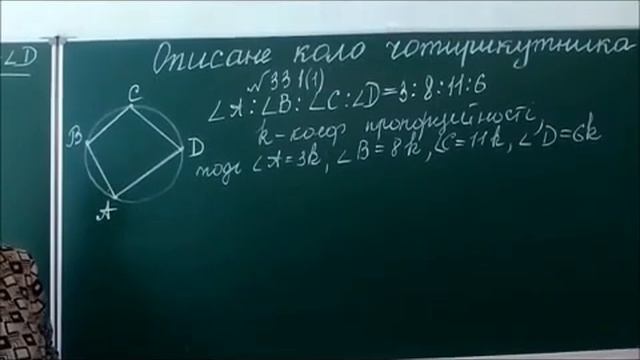 ∠D
Описане коло чотирикутника
№331(1)
∠A:∠B:∠C:∠D=3:8:11:6
k-коеф пропорційності,
тоді ∠A=3k, ∠B=8k, ∠C=11k, ∠D=6k
C
B
D
A